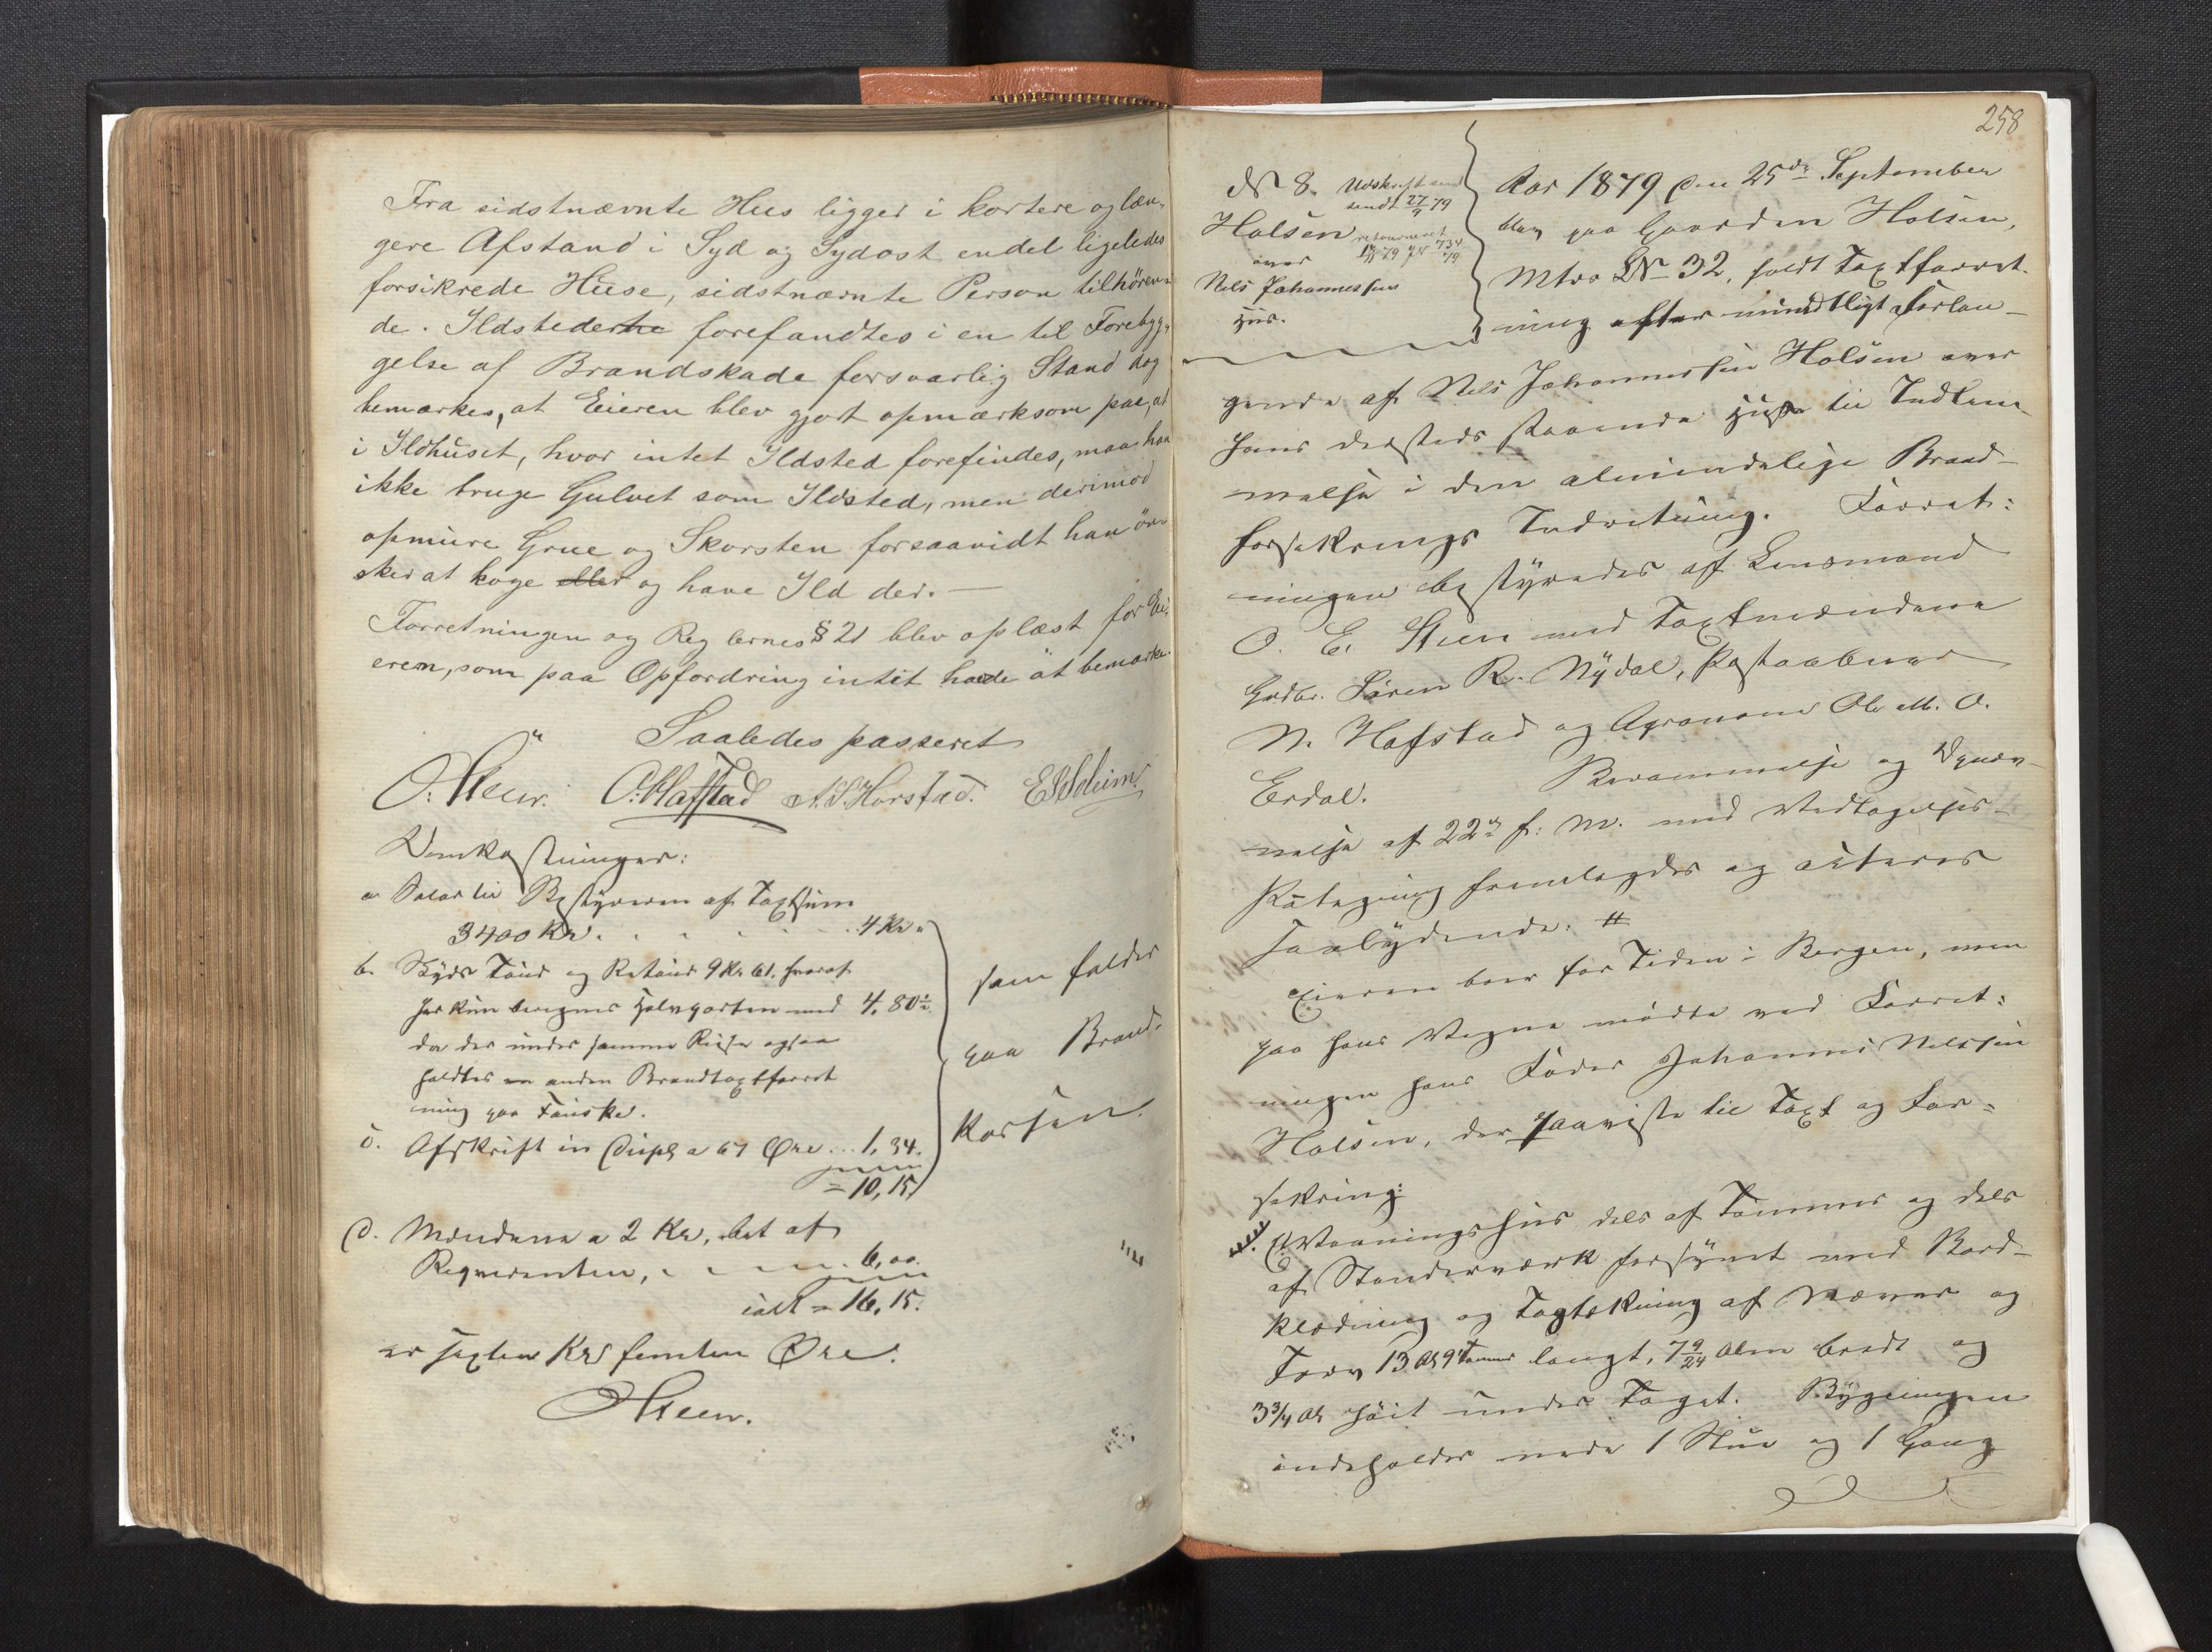 Fra sidstnævnte Hus ligger i kortere og læn-
gere Afstand i Syd og Sydost endel ligeledes
forsikrede Huse, sidstnævnte Person tilhören-
de. Ildstederne forefandtes i en til Forebyg-
gelse af Brandskade forsvarlig Stand dog
bemærkes, at Eieren blev gjort opmærksom paa, at
i Ildhuset, hvor intet Ildsted forefindes, maa han
ikke bruge Gulvet som Ildsted, men derimod
opmure Grue og Skorsten forsaavidt han ön-
sker at koge eller og have Ild der. —
Forretningen og Reglernes § 21 blev oplæst for Ei-
eren, som paa Opfordring intet havde at bemærke.
Saaledes passeret
O. Steen. O. Hafstad A. S. Horstad. E S Solheim
Omkostninger:
a Salar til Bestyreren af Taxtsum
3400 Kr. . . . . . 4 Kr "
b. Skyds Tour og Retour 9 Kr 61. hvoraf
her kun beregnes Halvparten med 4,80½
da der under samme Reise ogsaa
holdtes en anden Brandtaxtforret
ning paa Fauske.
c. Afskrift in Dupl a 67 Øre ... 1,34.
= 10,15
som falder
paa Brand-
kassen.
d. Mændene a 2 Kr, bet af
Reqvirenten, . . . . 6,00.
ialt = 16,15.
er sexten Kr femten Øre.
O Steen.
258
N 8. Udskrift
sendt 27/9 79
Holsen retourneret
79 734/79
over
Nels Johannessens
Hus.
Aar 1879 den 25de September
blev paa Gaarden Holsen,
Mtr. LN 32, holdt Taxtforret-
ning efter mundtligt Forlan-
gende af Nels Johannessen Holsen over
hans dersteds staaende Huse til Indlem-
melse i den almindelige Brand-
forsikrings Indretning. Forret-
ningen bestyredes af Lensmand
O. E. Steen med Taxtmændene
Grdbr. Sören R. Nydal, Postaabner
N. Hafstad og Agronom Ole M. O.
Erdal. Berammelse og Opnæv-
nelse af 22de f: M. med Vedtagelses-
Paategning fremlagdes og acteres
saalydende: #
Eieren boer for Tiden i Bergen, men
paa hans Vegne mödte ved Forret-
ningen hans Fader Johannes Nelssen
Holsen, der paaviste til Taxt og For-
sikring:
Vaaningshus dels af Tømmer og dels
af Stenderværk forsynet med Bord-
klædning og Tagtækning af Næver og
Torv 13 Al 9 Tommer langt, 7 9/24 Alen bredt og
3¾ Al höit under Taget. Bygningen
indeholder nede 1 Stue og 1 Gang